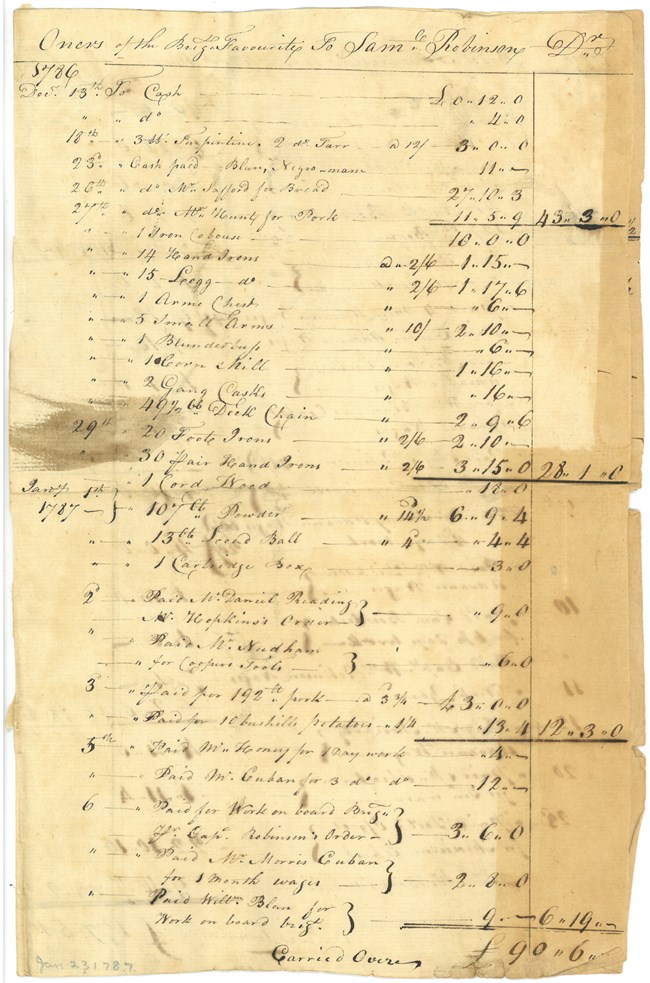 Oners of the Brig Favourite To Saml Robinson Dr
1786
Decr 13th To Cash £ 0 " 12 " 0
" " do " 4 " 0
18th " 3 Turpintine 2 do Tarr a 12/ 3 " 0 " 0
23d " Cash paid Blan, Negro man 11 "
26th " do Mr Safford for Bread 27 " 10 " 3
27th " do Mr Hunt for Pork 11 " 5 " 9 43 " 3 " 0
" " 1 Iron Cabouse 10 " 0 " 0
" " 14 Hand Irons a " 2/6 1 " 15 "
" " 15 Legg do " 2/6 1 " 17 " 6
" " 1 Arme Chest " 6 "
" " 5 Small Arms " 10/ 2 " 10 "
" " 1 Blunderbuss " 6 "
" " 1 Corn Mill 1 " 16 "
" " 2 Gang Casks " 16 "
" " 49 lb Deck Chain 2 " 9 " 6
29th " 20 Foote Irons " 2/6 2 " 10 "
" 30 Pair Hand Irons " 2/6 3 " 15 " 0 28 " 1 " 0
" 1 Cord Wood " 18 " 0
Janry 1st
1787 } " 107 lb Powder " 14½ 6 " 9 " 4
" " 13 lb Leed Ball " 4d " 4 " 4
" " 1 Cartridge Box " 3 " 0
2d " Paid Mr Daniel Reading
Mr Hopkins's Order } " 9 " 0
" Paid Mr Nedham
" for Coopers Tools } " 6 " 0
3 " Paid for 192 lb pork a 3¾ £ 3 " 0 " 0
" " Paid for 10 bushills potatoes " 1/4 " 13 " 4 12 " 3 " 0
5th " Paid Mr Honey for 1 Day work " 4 "
" Paid Mr Cuban for 3 do do 12 "
6 " Paid for Work on board Brig
Pr Capt Robinson's Order } 3 " 6 " 0
" " Paid Mr Morris Cuban
for 1 month wages } 2 " 8 " 0
" Paid Willm Blan for
Work on board brig } 9 " 6 " 19 "
Carried Over £ 90 " 6 "
Jan 23 1787